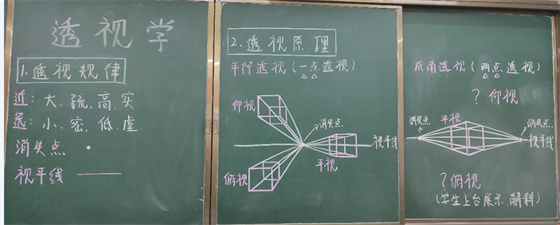 透视学
1.透视规律
近：大、疏、高、实
远：小、密、低、虚
消失点
视平线
2.透视原理
平行透视（一点透视）
仰视
消失点
视平线
平视
俯视
成角透视（两点透视）
？仰视
消失点
平视
消失点
视平线
？俯视
（学生上台展示、解释）